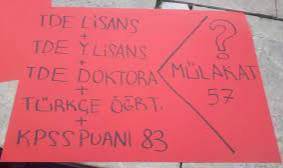 TDE LİSANS
+
TDE Y.LİSANS
+
TDE DOKTORA
+
TÜRKÇE ÖĞRT.
+
KPSS PUANI 83
?
MÜLAKAT
57